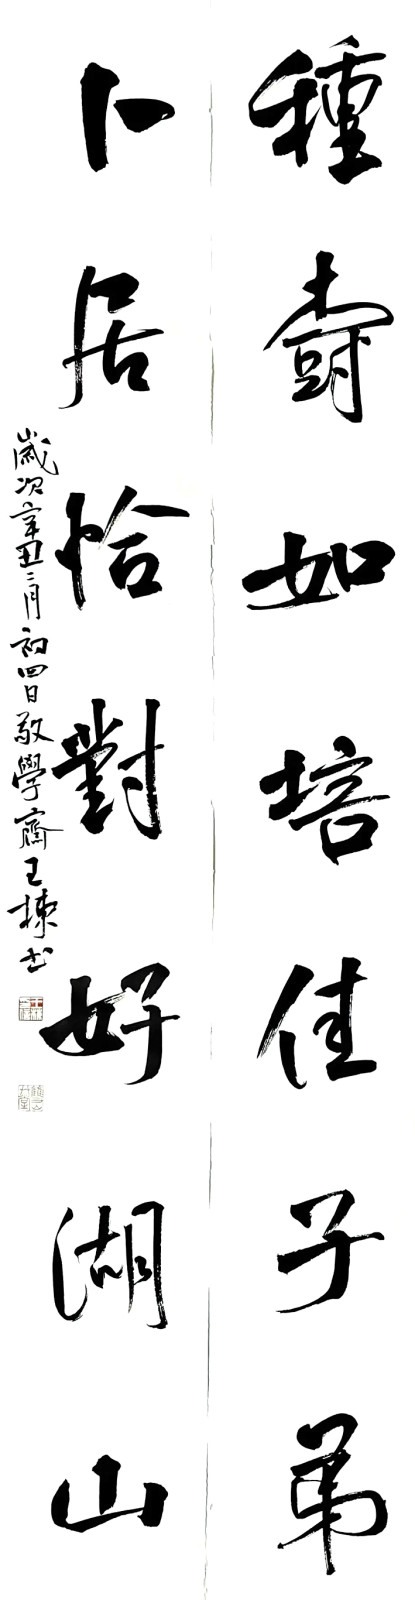 種樹如培佳子弟
卜居恰對好湖山
歲次辛丑三月初四日敬學齋王棟书